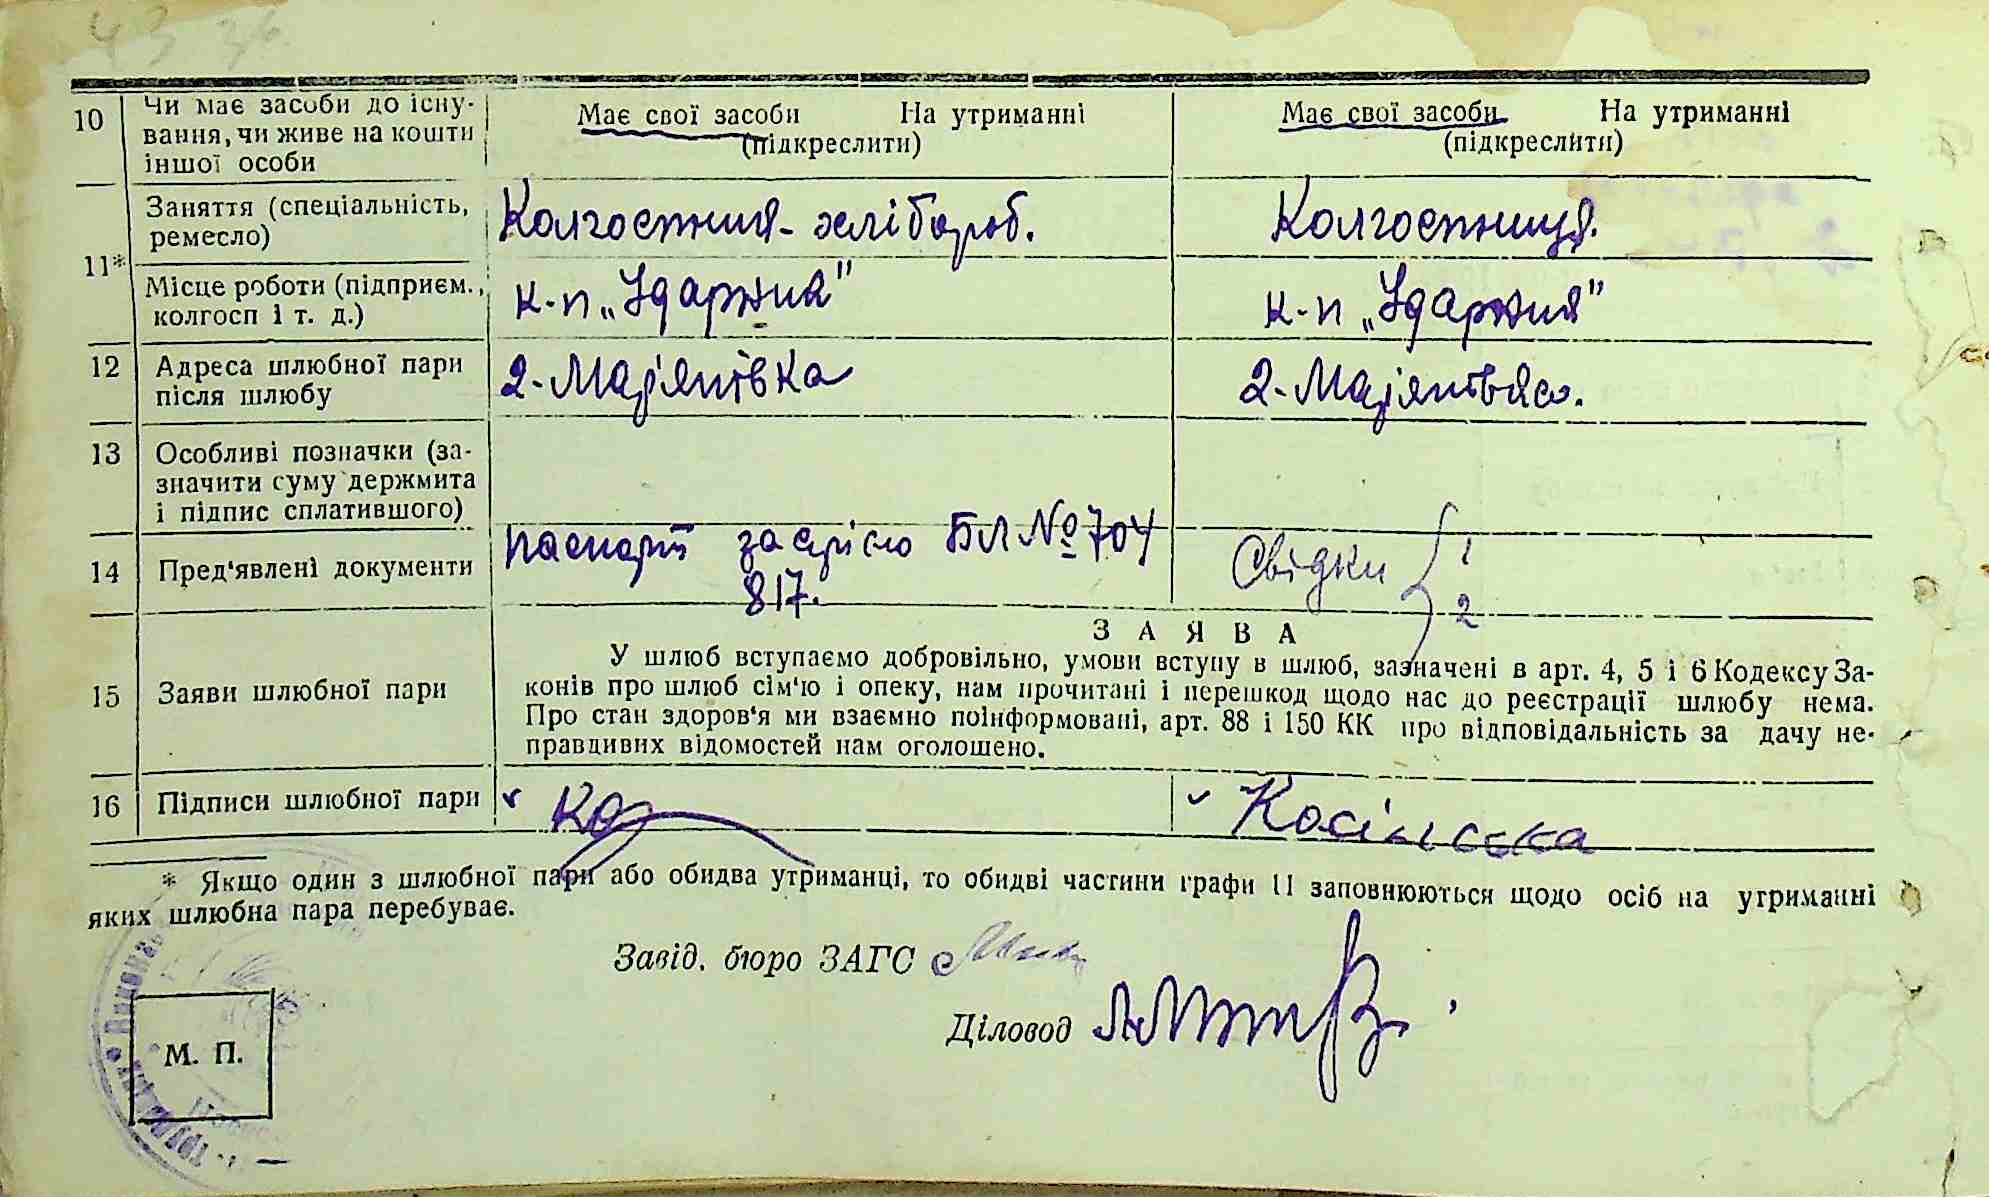 43 36
10 Чи має засоби до існу-
вання, чи живе на кошти
іншої особи
Має свої засоби На утриманні
(підкреслити)
Має свої засоби На утриманні
(підкреслити)
11*
Заняття (спеціальність,
ремесло)
Колгоспник-хлібороб.
Колгоспниця.
Місце роботи (підприєм.,
колгосп і т. д.)
к-п „Ударник"
к-п „Ударник"
12 Адреса шлюбної пари
після шлюбу
2-Мар'янівка
2-Мар'янівка.
13 Особливі позначки (за-
значити суму держмита
і підпис сплатившого)
14 Пред'явлені документи
паспорт за серією БЛ № 704
817.
Свідки 1
2
15 Заяви шлюбної пари
ЗАЯВА
У шлюб вступаємо добровільно, умови вступу в шлюб, зазначені в арт. 4, 5 і 6 Кодексу За-
конів про шлюб сім'ю і опеку, нам прочитані і перешкод щодо нас до реєстрації шлюбу нема.
Про стан здоров'я ми взаємно поінформовані, арт. 88 і 150 КК про відповідальність за дачу не-
правдивих відомостей нам оголошено.
16 Підписи шлюбної пари
Косінська
* Якщо один з шлюбної пари або обидва утриманці, то обидві частини графи 11 заповнюються щодо осіб на утриманні
яких шлюбна пара перебуває.
Завід. бюро ЗАГС
Діловод
М. П.